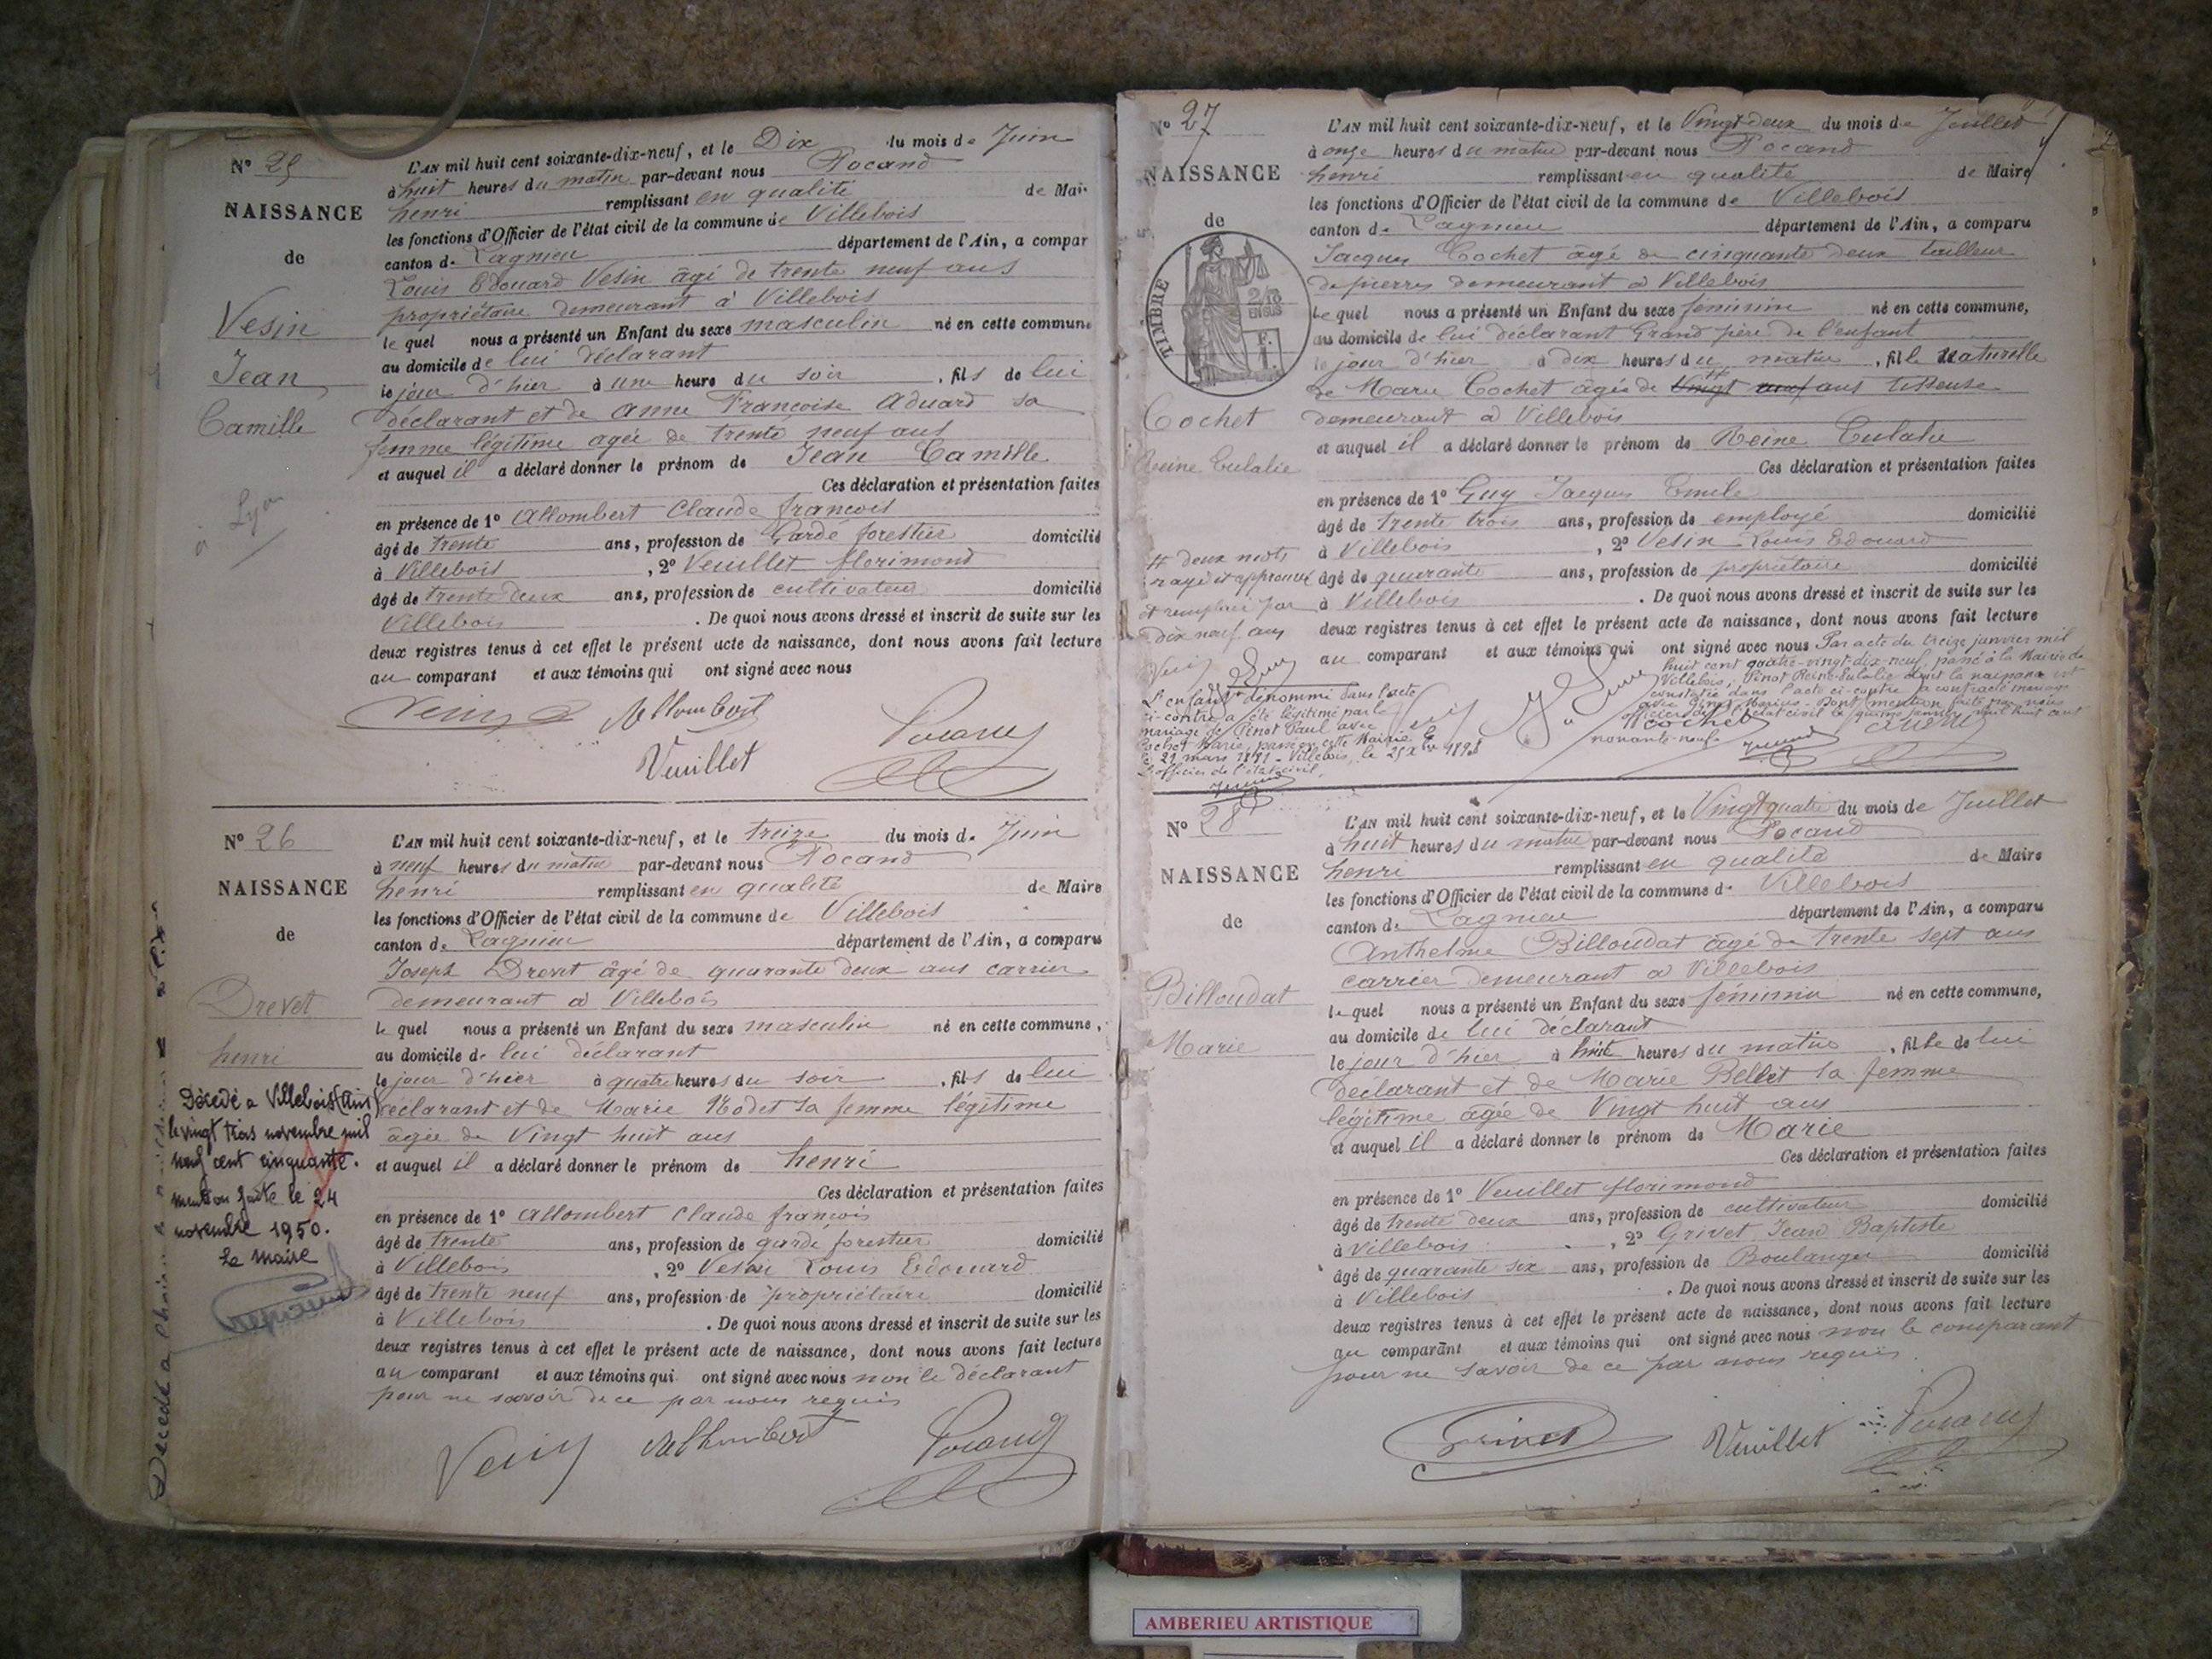 N° 25
NAISSANCE
de
Vesin
Jean
Camille
à Lyon
L'AN mil huit cent soixante-dix-neuf, et le Dix du mois de Juin
à huit heures du matin par-devant nous Pocand
henri remplissant en qualité de Mai
les fonctions d'Officier de l'état civil de la commune de Villebois
canton de Lagnieu département de l'Ain, a compar
Louis Edouard Vesin âgé de trente neuf ans
propriétaire demeurant à Villebois
le quel nous a présenté un Enfant du sexe masculin né en cette commune
au domicile de lui déclarant
le jour d'hier à une heure du soir , fils de lui
déclarant et de Anne Françoise Aduard sa
femme légitime agée de trente neuf ans
et auquel il a déclaré donner le prénom de Jean Camille
Ces déclaration et présentation faites
en présence de 1° Allombert Claude françois
âgé de trente ans, profession de Garde forestier domicilié
à Villebois , 2° Veuillet florimond
âgé de trente deux ans, profession de cultivateur domicilié
Villebois . De quoi nous avons dressé et inscrit de suite sur les
deux registres tenus à cet effet le présent acte de naissance, dont nous avons fait lecture
au comparant et aux témoins qui ont signé avec nous
Vesin Allombert
Veuillet Pocand
N° 26
NAISSANCE
de
Drevet
henri
Décédé a Villebois (Ain)
le vingt trois novembre mil
neuf cent cinquante.
mention faite le 24
novembre 1950.
Le maire
L'AN mil huit cent soixante-dix-neuf, et le treize du mois de Juin
à neuf heures du matin par-devant nous Pocand
henri remplissant en qualité de Maire
les fonctions d'Officier de l'état civil de la commune de Villebois
canton de Lagnieu département de l'Ain, a comparu
Joseph Drevet âgé de quarante deux ans carrier
demeurant a Villebois
le quel nous a présenté un Enfant du sexe masculin né en cette commune,
au domicile de lui déclarant
le jour d'hier à quatre heures du soir , fils de lui
déclarant et de Marie Rodet sa femme légitime
âgée de vingt huit ans
et auquel il a déclaré donner le prénom de henri
Ces déclaration et présentation faites
en présence de 1° Allombert Claude françois
âgé de trente ans, profession de garde forestier domicilié
à Villebois , 2° Vesin Louis Edouard
âgé de trente neuf ans, profession de propriétaire domicilié
à Villebois . De quoi nous avons dressé et inscrit de suite sur les
deux registres tenus à cet effet le présent acte de naissance, dont nous avons fait lecture
au comparant et aux témoins qui ont signé avec nous non le déclarant
pour ne savoir de ce par nous requis
Vesin Allombert Pocand
N° 27
NAISSANCE
de
TIMBRE
2/10
EN SUS
Cochet
Reine Eulalie
# deux mots
rayé et approuvé
et remplacé par
dix neuf ans
L'enfant dénommé dans l'acte
ci-contre a été légitimé par le
mariage de Pinot Paul avec
Cochet Marie, passé en cette Mairie le
21 mars 1891 - Villebois, le 25 Xbre 1898
L'officier de l'état civil,
L'AN mil huit cent soixante-dix-neuf, et le Vingt-deux du mois de Juillet
à onze heures du matin par-devant nous Pocand
henri remplissant en qualité de Maire
les fonctions d'Officier de l'état civil de la commune de Villebois
canton de Lagnieu département de l'Ain, a comparu
Jacques Cochet âgé de cinquante deux tailleur
de pierres demeurant a Villebois
le quel nous a présenté un Enfant du sexe féminin né en cette commune,
au domicile de lui déclarant Grand père de l'enfant
le jour d'hier à dix heures du matin , fille naturelle
de Marie Cochet âgée de Vingt neuf ans tisseuse
demeurant a Villebois
et auquel il a déclaré donner le prénom de Reine Eulalie
Ces déclaration et présentation faites
en présence de 1° Guy Jacques Emile
âgé de trente trois ans, profession de employé domicilié
à Villebois , 2° Vesin Louis Edouard
âgé de quarante ans, profession de propriétaire domicilié
à Villebois . De quoi nous avons dressé et inscrit de suite sur les
deux registres tenus à cet effet le présent acte de naissance, dont nous avons fait lecture
au comparant et aux témoins qui ont signé avec nous Par acte du treize janvier mil
huit cent quatre-vingt-dix-neuf passé à la Mairie de
Villebois, Pinot Reine Eulalie dont la naissance est
constatée dans l'acte ci-contre a contracté mariage
avec Marius - Dont mention faite par nous
officier de l'état civil le quinze janvier mil huit cent
nonante-neuf
Cochet
N° 28
NAISSANCE
de
Billoudat
Marie
L'AN mil huit cent soixante-dix-neuf, et le Vingt quatre du mois de Juillet
à huit heures du matin par-devant nous Pocand
henri remplissant en qualité de Maire
les fonctions d'Officier de l'état civil de la commune de Villebois
canton de Lagnieu département de l'Ain, a comparu
Anthelme Billoudat âgé de trente sept ans
carrier demeurant a Villebois
le quel nous a présenté un Enfant du sexe féminin né en cette commune,
au domicile de lui déclarant
le jour d'hier à huit heures du matin , fille de lui
déclarant et de Marie Bellet sa femme
légitime âgée de Vingt huit ans
et auquel il a déclaré donner le prénom de Marie
Ces déclaration et présentation faites
en présence de 1° Veuillet florimond
âgé de trente deux ans, profession de cultivateur domicilié
à Villebois , 2° Grivet Jean Baptiste
âgé de quarante six ans, profession de Boulanger domicilié
à Villebois . De quoi nous avons dressé et inscrit de suite sur les
deux registres tenus à cet effet le présent acte de naissance, dont nous avons fait lecture
au comparant et aux témoins qui ont signé avec nous non le comparant
pour ne savoir de ce par nous requis.
Grivet Veuillet Pocand
AMBERIEU ARTISTIQUE